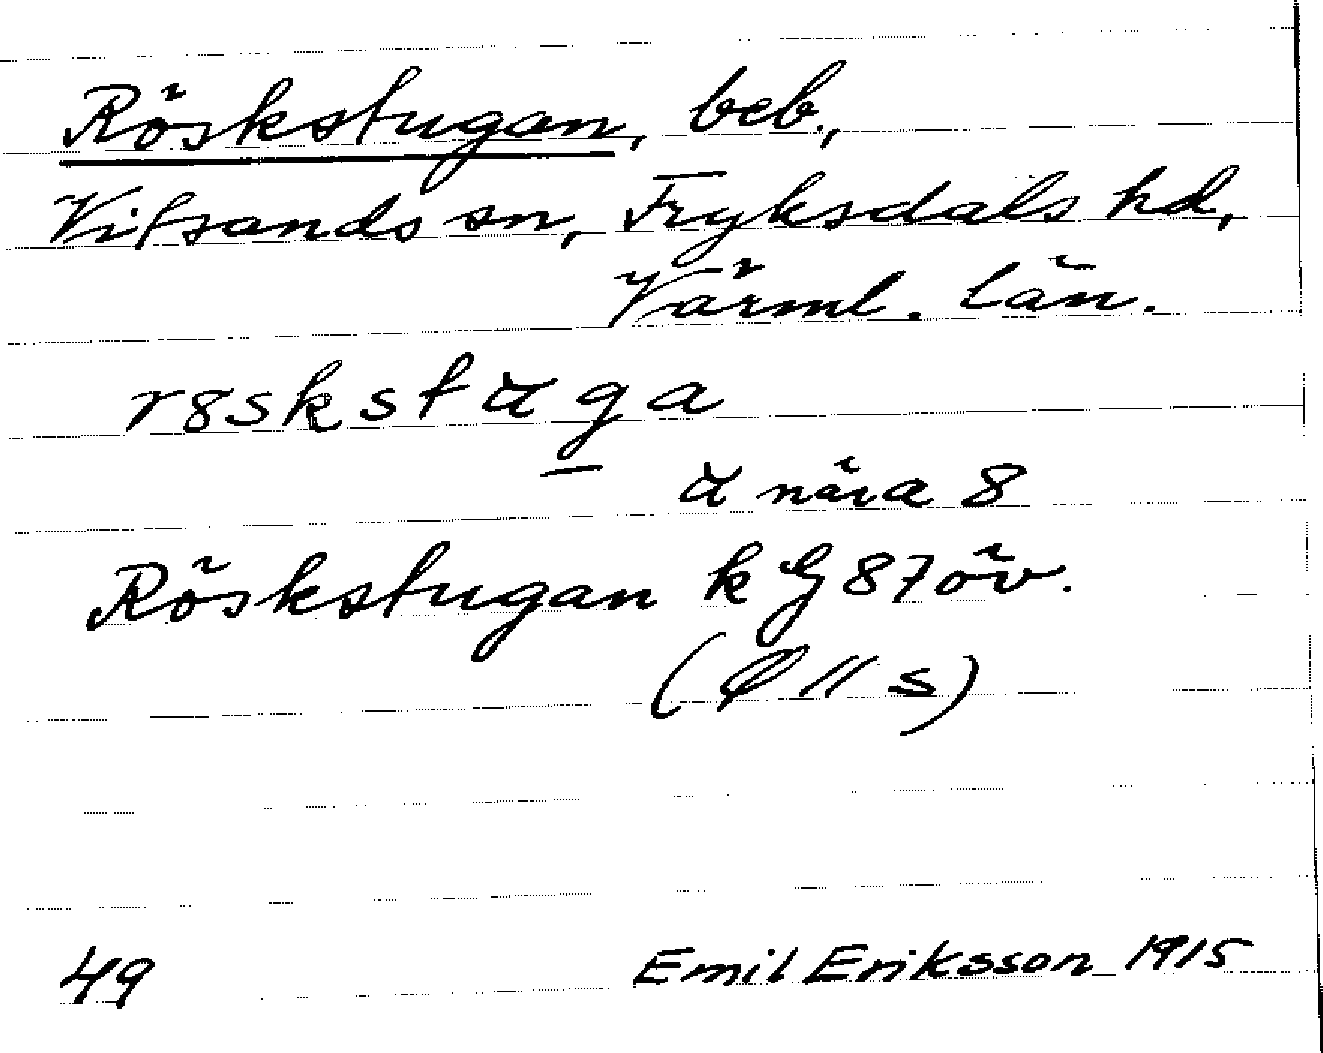 Röskstugan, beb.,
Vitsands sn, Fryksdals hd,
Värml. län.
r8skstuga
u nära 8
Röskstugan k G 87 öv.
( // s)
49 Emil Eriksson 1915